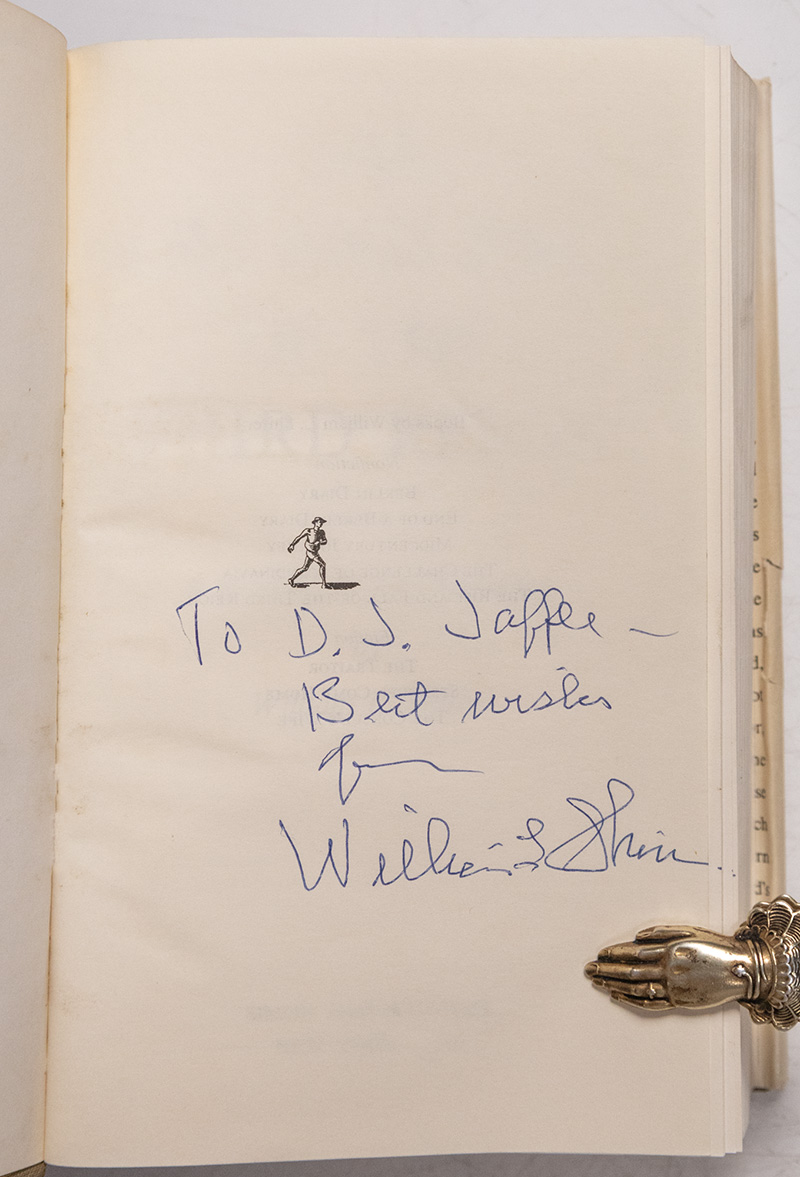 To D. J. Jaffee –
Best wishes
from
William L Shirer